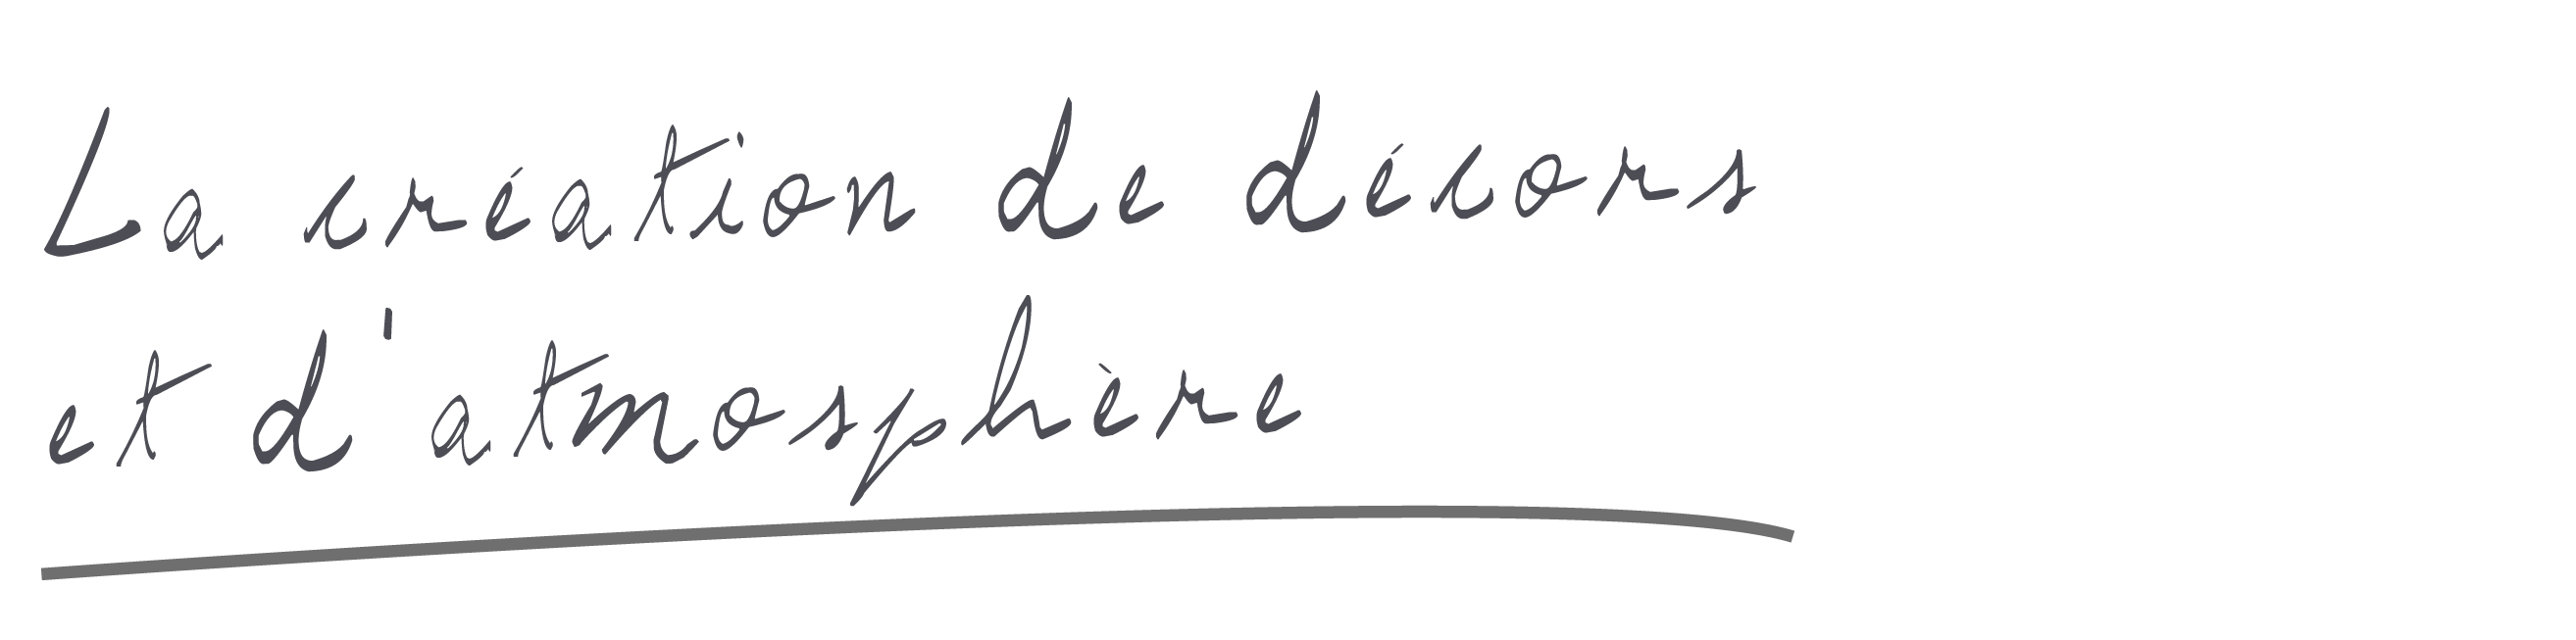 La création de décors
et d'atmosphère